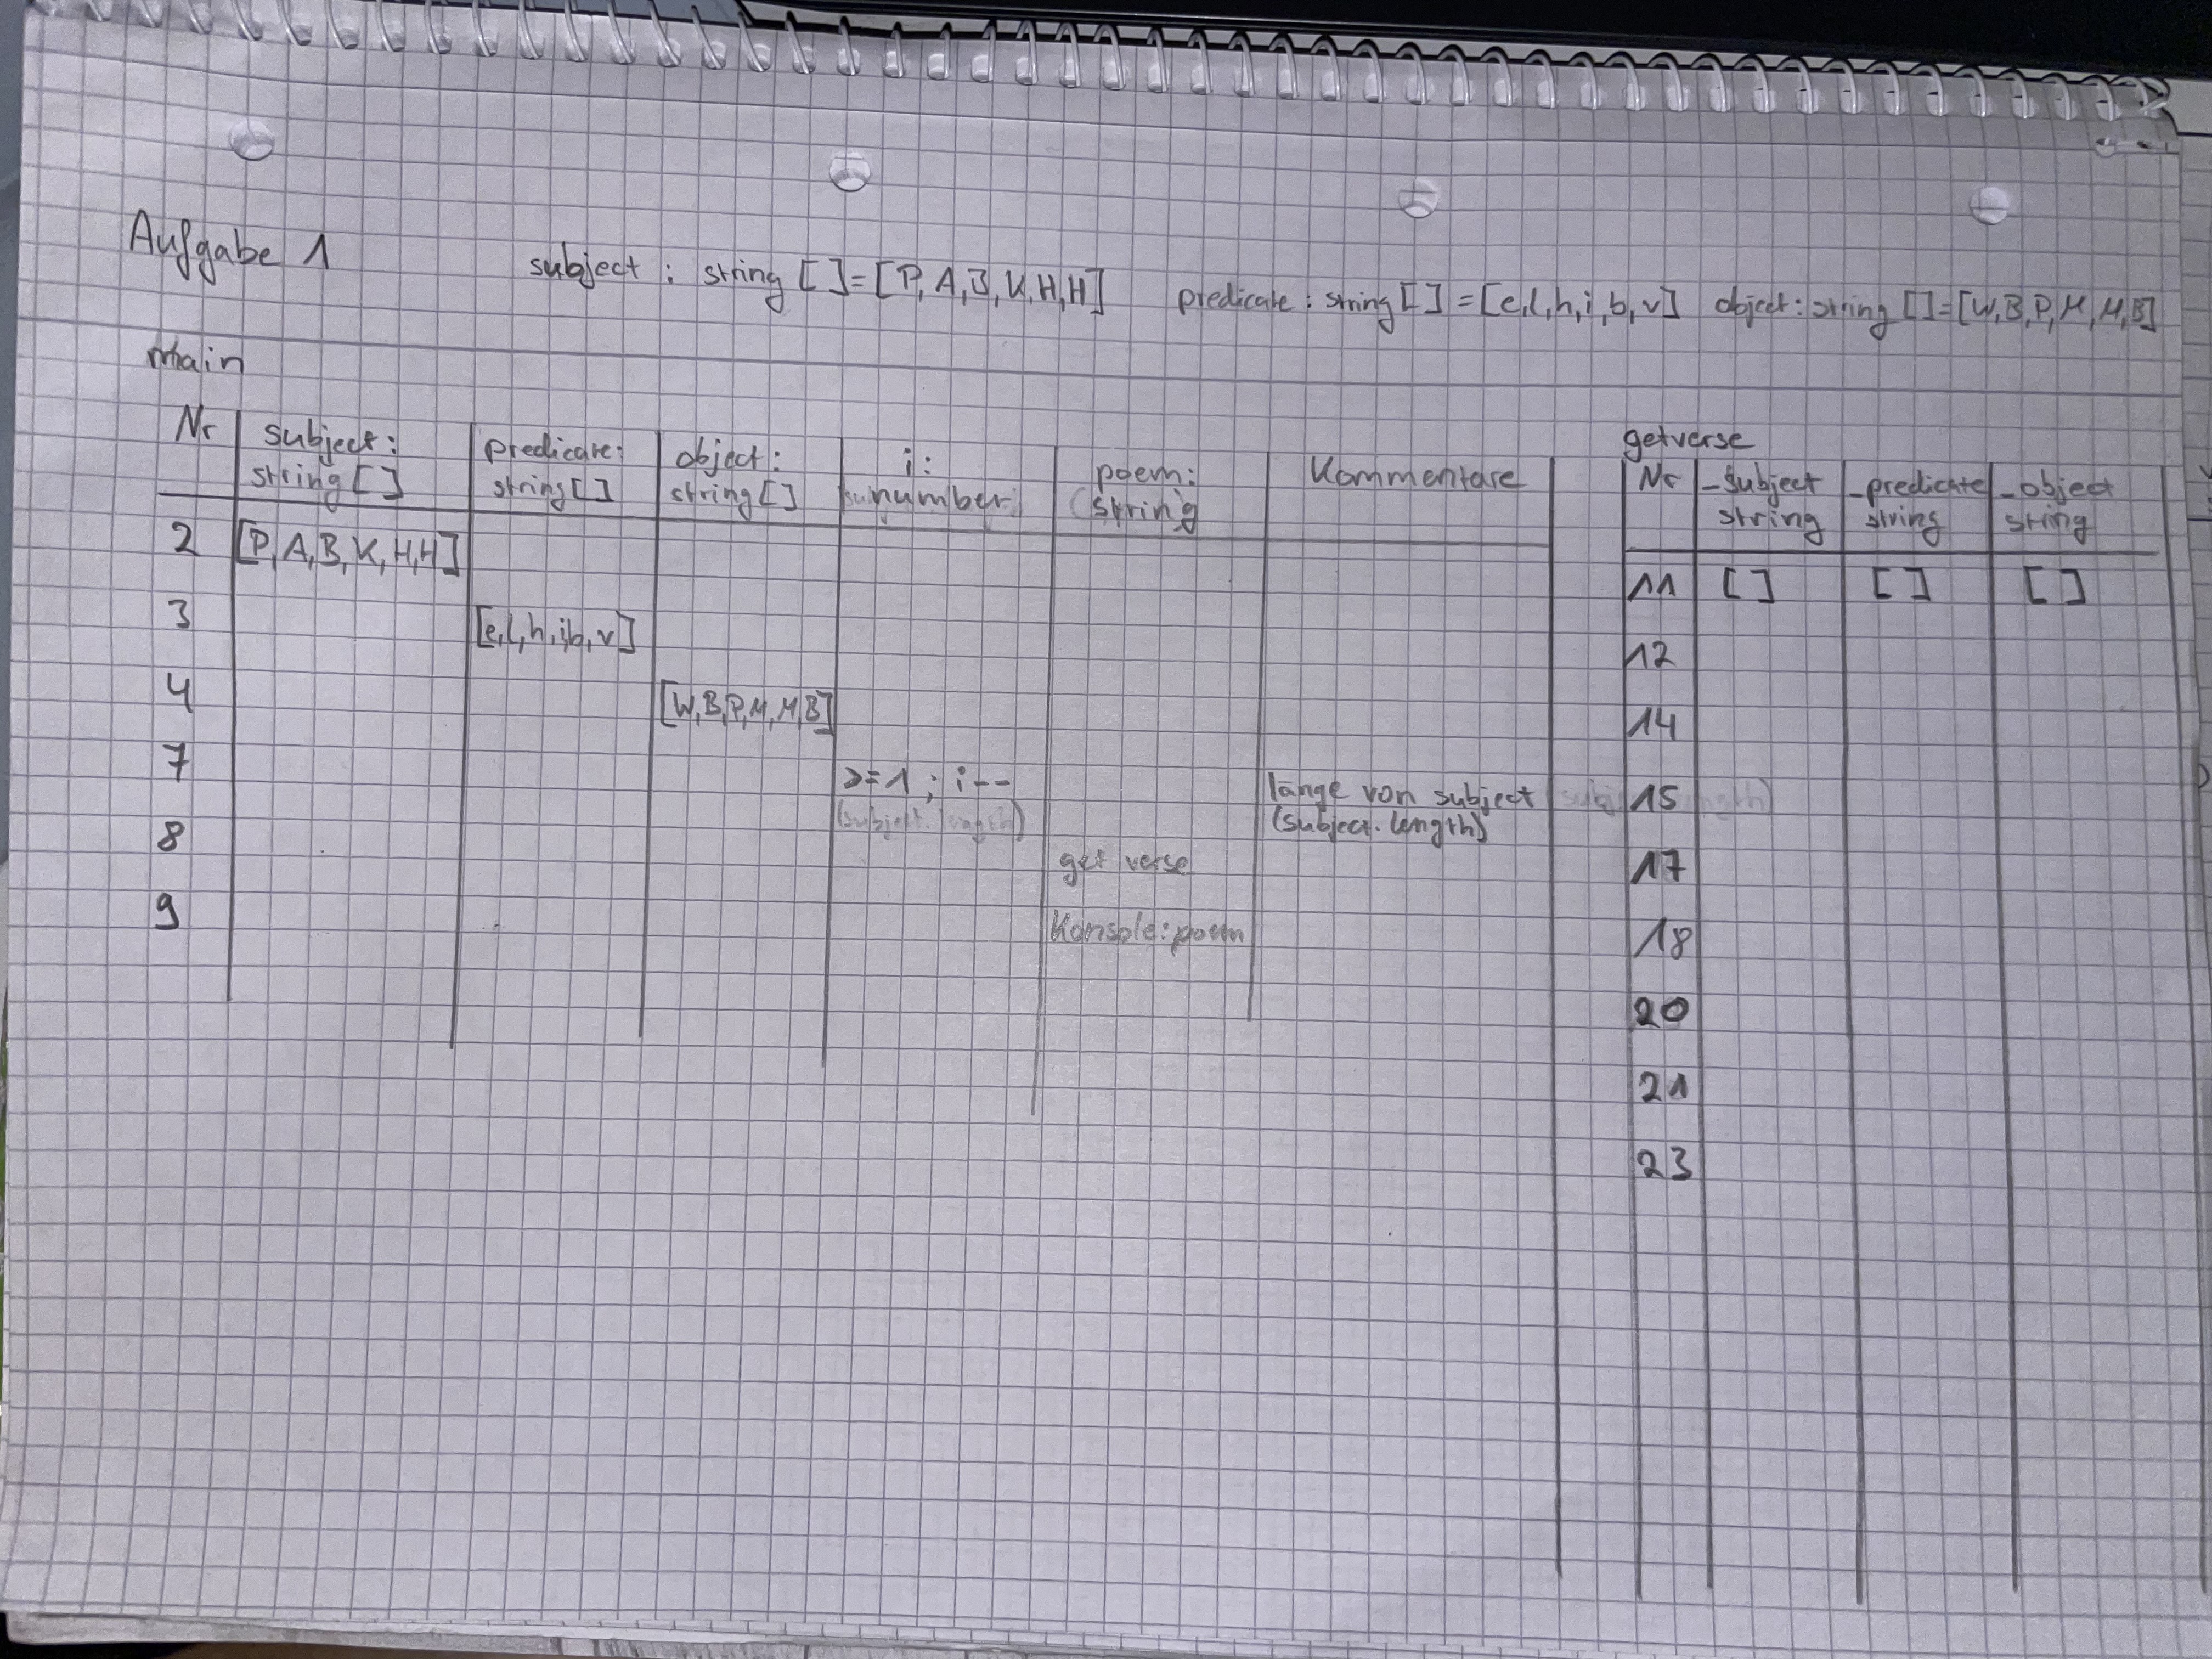 Aufgabe 1
subject : string [ ] = [P, A, B, K, H, H] predicate : string [ ] = [e, l, h, i, b, v] object : string [ ] = [W, B, P, M, M, B]
main
Nr subject : string [ ] predicate : string [ ] object : string [ ] i : number poem : (string Kommentare
2 [P, A, B, K, H, H]
3 [e, l, h, i, b, v]
4 [W, B, P, M, M, B]
7 >=1 ; i-- länge von subject
(subject.length) (subject.length)
8 get verse
9 Konsole: poem
getverse
Nr -subject string -predicate string -object string
11 [ ] [ ] [ ]
12
14
15
17
18
20
21
23